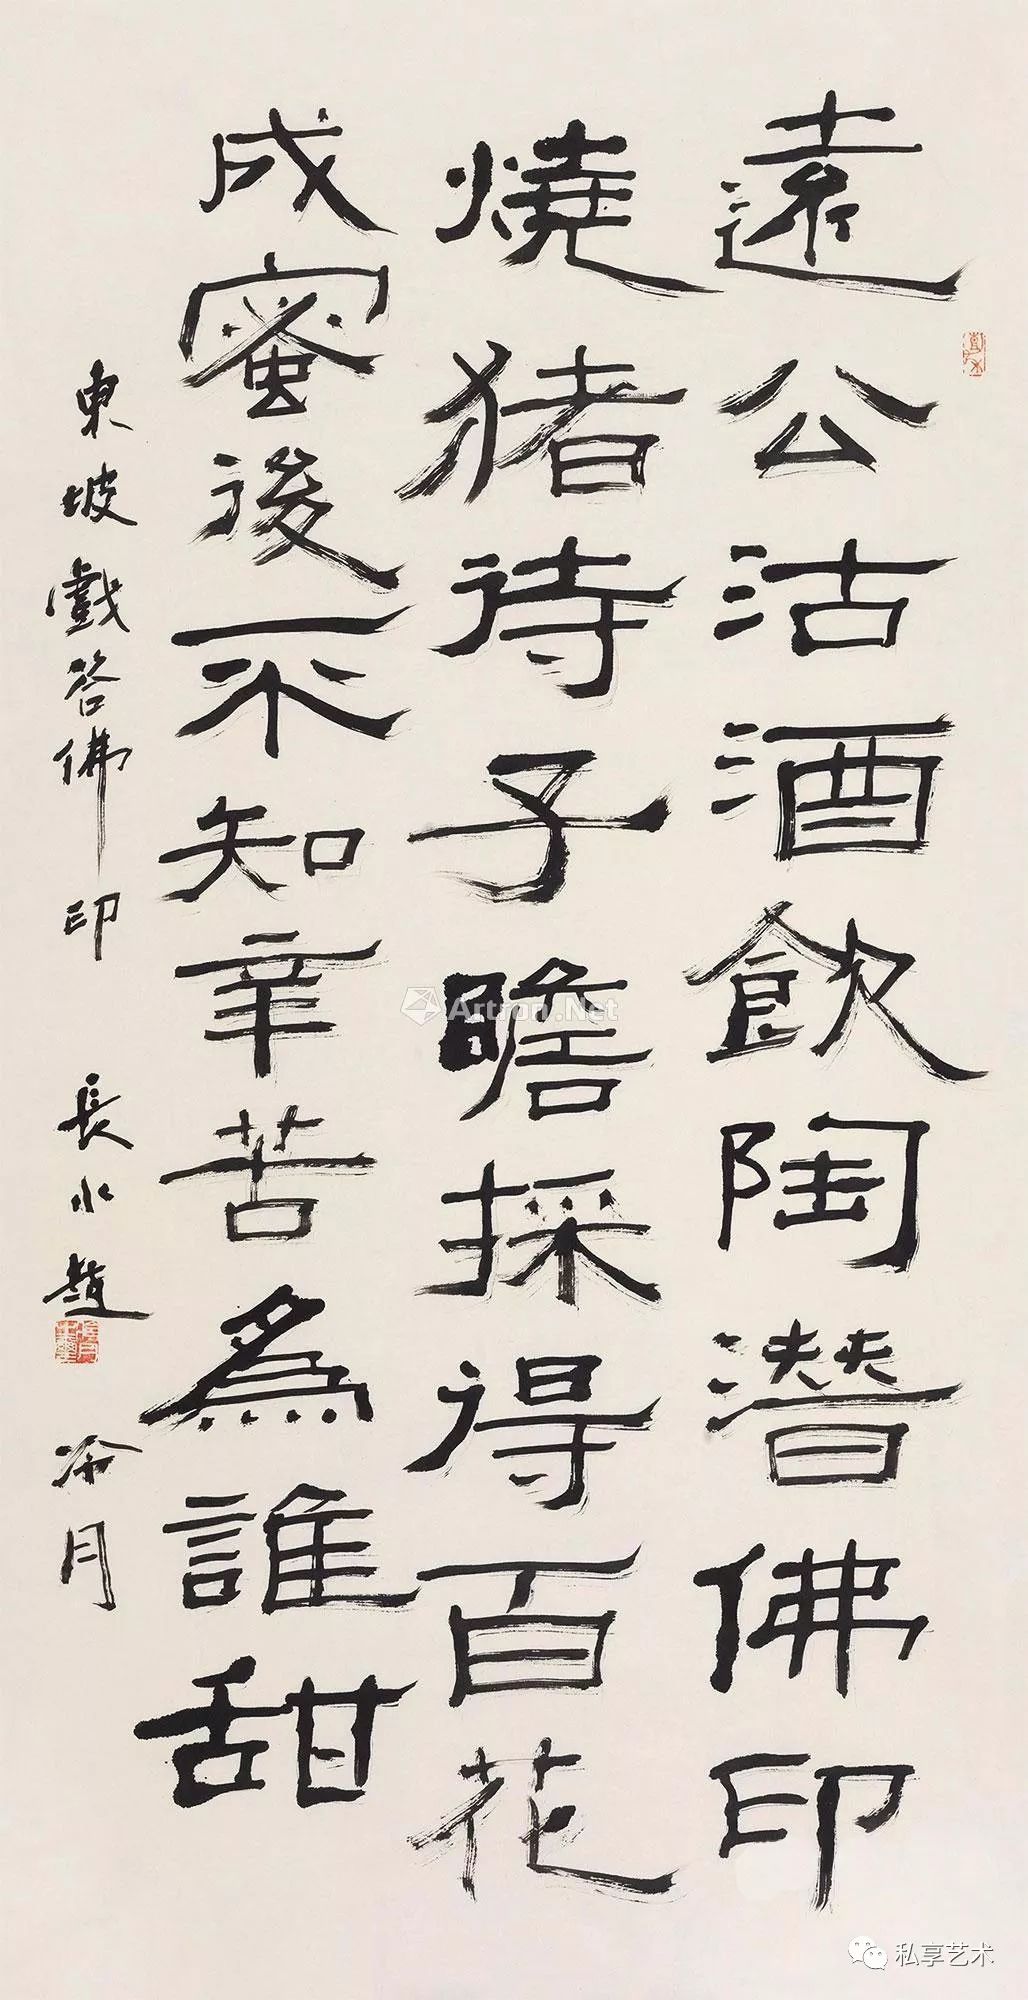 遠公沽酒飲陶潛佛印
燒猪待子瞻採得百花
成蜜後不知辛苦為誰甜
東坡戲答佛印 長水趙冷月
Artron.Net
私享艺术